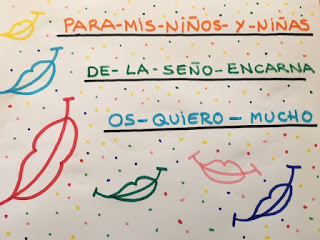 PARA-MIS-NIÑOS-Y-NIÑAS
DE-LA-SEÑO-ENCARNA
OS-QUIERO-MUCHO